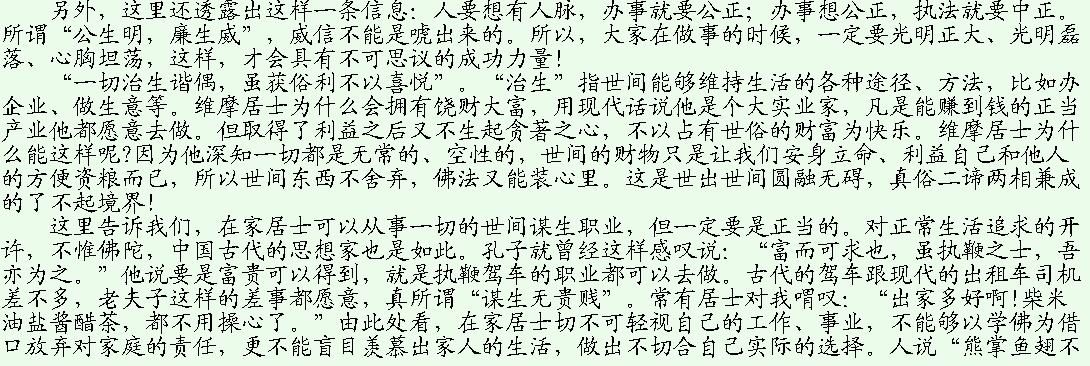 另外，这里还透露出这样一条信息：人要想有人脉，办事就要公正；办事想公正，执法就要中正。
所谓“公生明，廉生威”，威信不能是唬出来的。所以，大家在做事的时候，一定要光明正大、光明磊
落、心胸坦荡，这样，才会具有不可思议的成功力量！
“一切治生谐偶，虽获俗利不以喜悦”。“治生”指世间能够维持生活的各种途径、方法，比如办
企业、做生意等。维摩居士为什么会拥有饶财大富，用现代话说他是个大实业家，凡是能赚到钱的正当
产业他都愿意去做。但取得了利益之后又不生起贪著之心，不以占有世俗的财富为快乐。维摩居士为什
么能这样呢?因为他深知一切都是无常的、空性的，世间的财物只是让我们安身立命、利益自己和他人
的方便资粮而已，所以世间东西不舍弃，佛法又能装心里。这是世出世间圆融无碍，真俗二谛两相兼成
的了不起境界！
这里告诉我们，在家居士可以从事一切的世间谋生职业，但一定要是正当的。对正常生活追求的开
许，不惟佛陀，中国古代的思想家也是如此。孔子就曾经这样感叹说：“富而可求也，虽执鞭之士，吾
亦为之。”他说要是富贵可以得到，就是执鞭驾车的职业都可以去做。古代的驾车跟现代的出租车司机
差不多，老夫子这样的差事都愿意，真所谓“谋生无贵贱”。常有居士对我喟叹：“出家多好啊!柴米
油盐酱醋茶，都不用操心了。”由此处看，在家居士切不可轻视自己的工作、事业，不能够以学佛为借
口放弃对家庭的责任，更不能盲目羡慕出家人的生活，做出不切合自己实际的选择。人说“熊掌鱼翅不